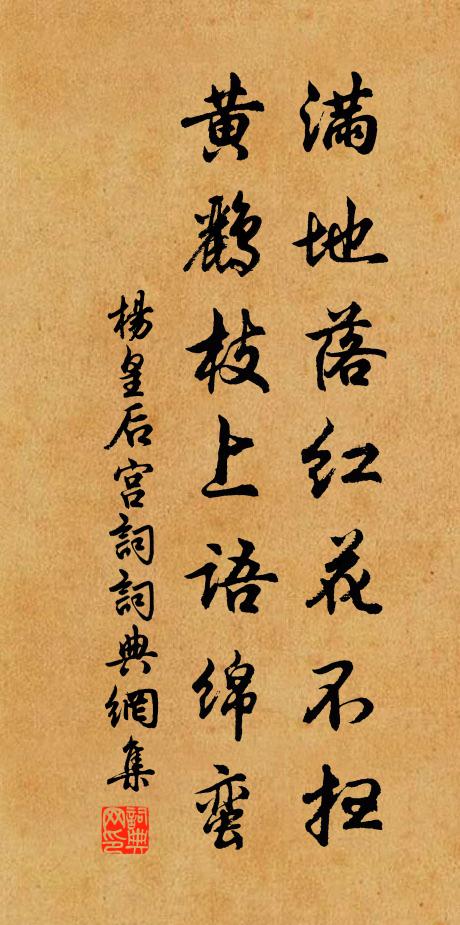 满地落红花不扫
黄鹂枝上语绵蛮
楊皇后宫詞詞典網集
詞典网印